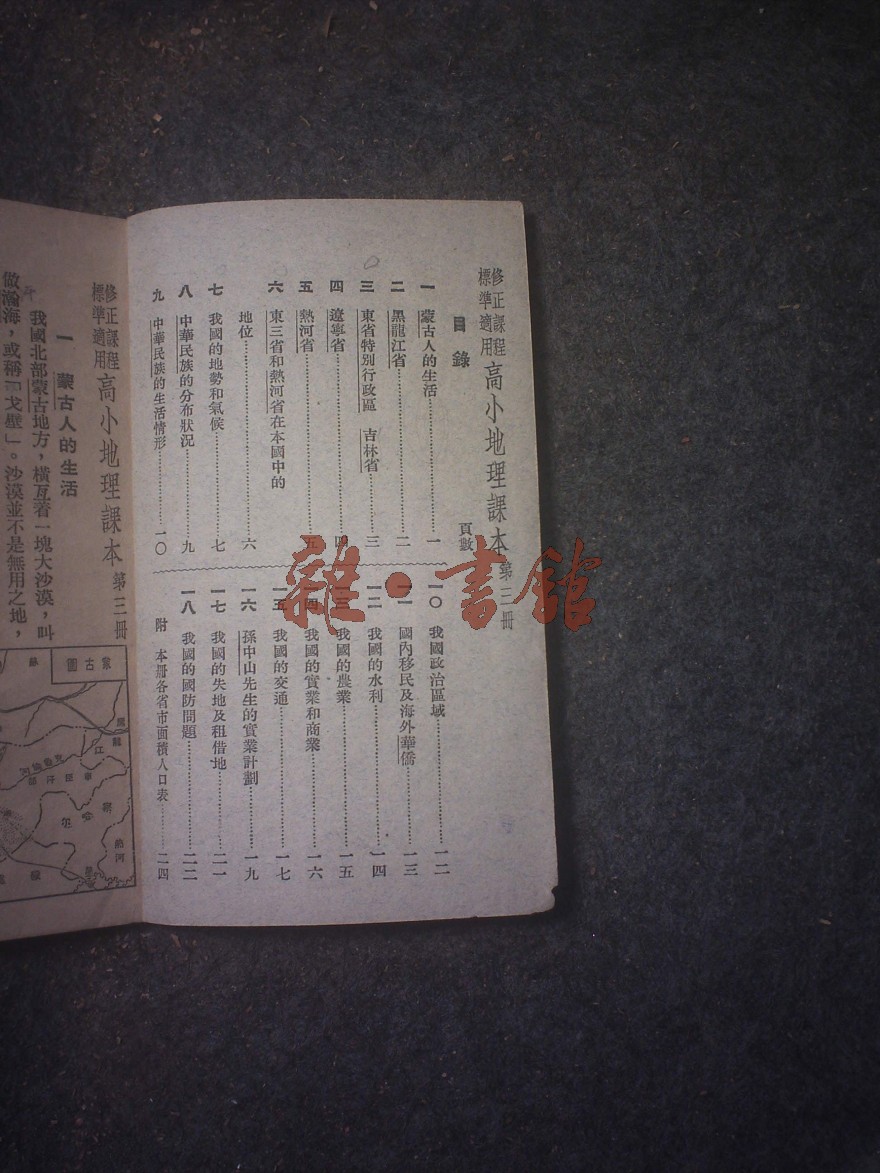 修正課程標準適用 高小地理課本 第三冊
目錄 頁數
一 蒙古人的生活 一
二 黑龍江省 二
三 東省特別行政區 吉林省 三
四 遼寧省 四
五 熱河省 五
六 東三省和熱河省在本國中的
地位 六
七 我國的地勢和氣候 七
八 中華民族的分布狀況 九
九 中華民族的生活情形 一〇
一〇 我國政治區域 一二
一一 國內移民及海外華僑 一三
一二 我國的水利 一四
一三 我國的農業 一五
一四 我國的實業和商業 一六
一五 我國的交通 一七
一六 孫中山先生的實業計劃 一九
一七 我國的失地及租借地 二一
一八 我國的國防問題 二二
附 本冊各省市面積人口表 二四
修正課程標準適用 高小地理課本 第三冊
一 蒙古人的生活
我國北部蒙古地方，橫亙着一塊大沙漠，叫
做瀚海，或稱「戈壁」。沙漠並不是無用之地，
蒙古圖
熱河
雜·書館